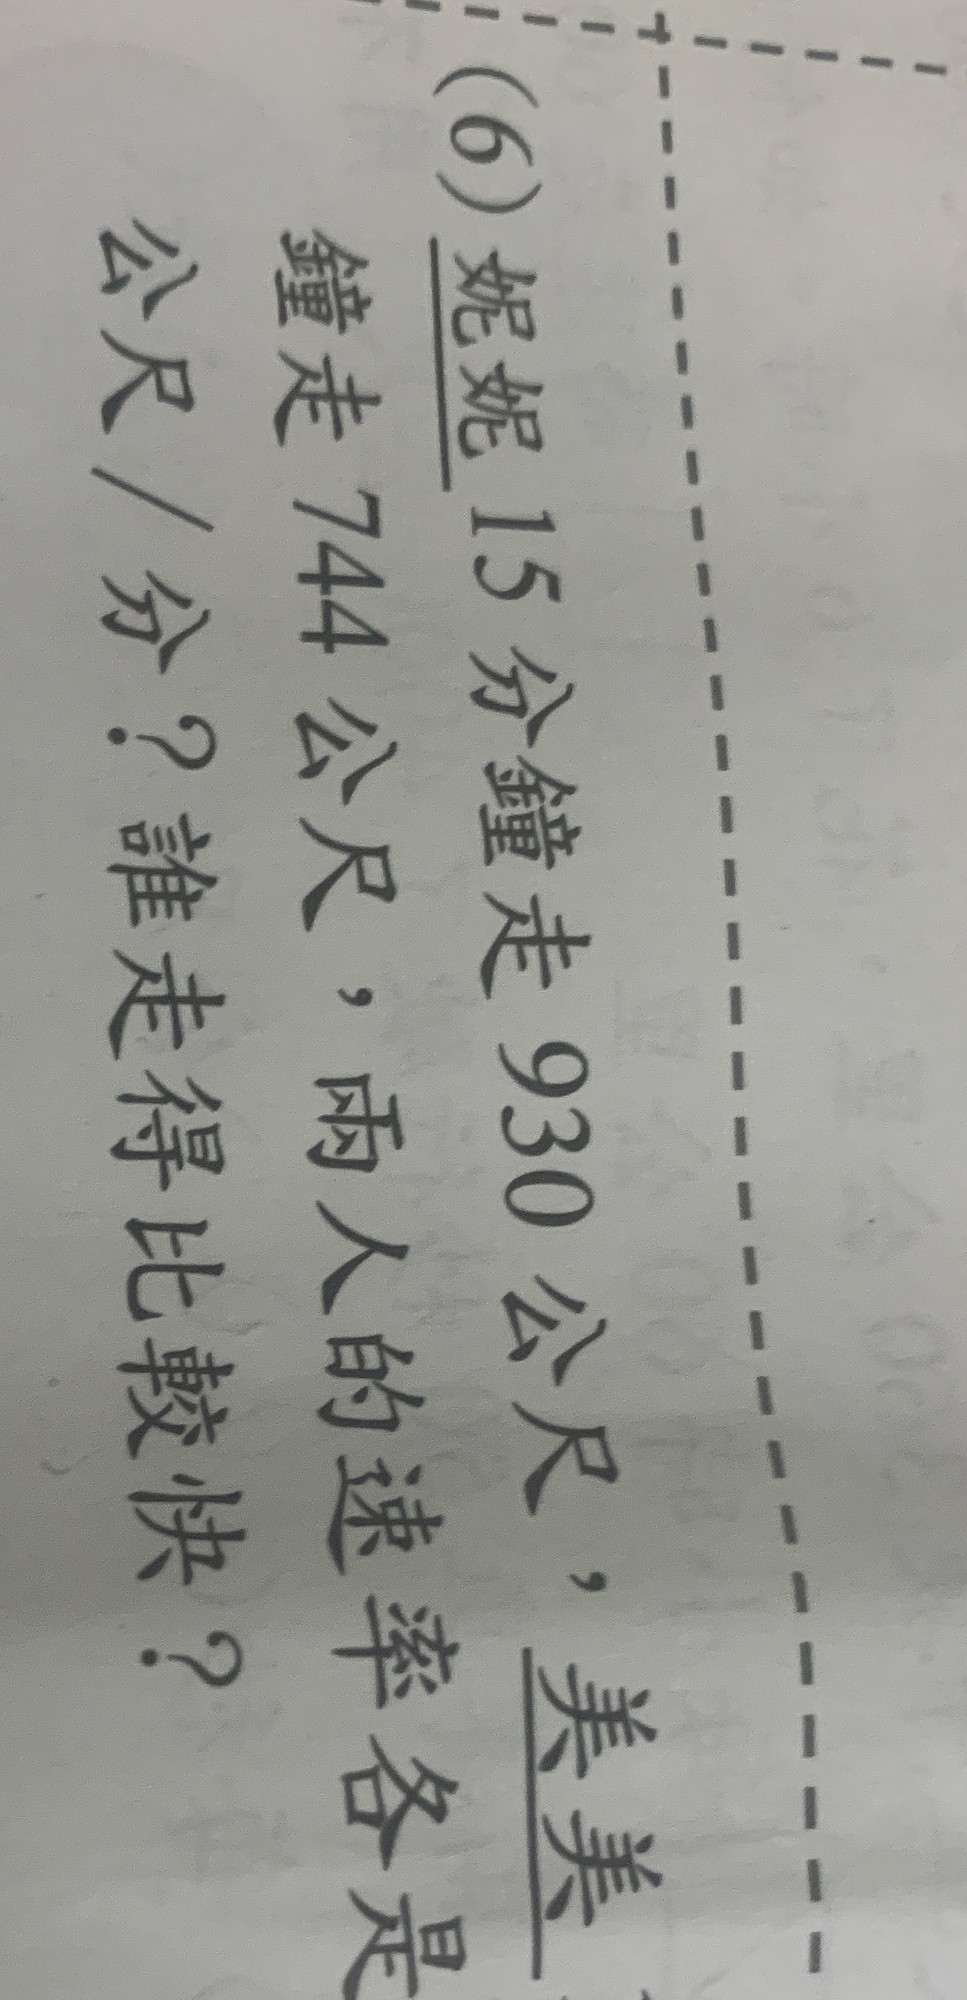 (6)妮妮 15 分鐘走 930 公尺，美美
鐘走 744 公尺，兩人的速率各是
公尺／分？誰走得比較快？